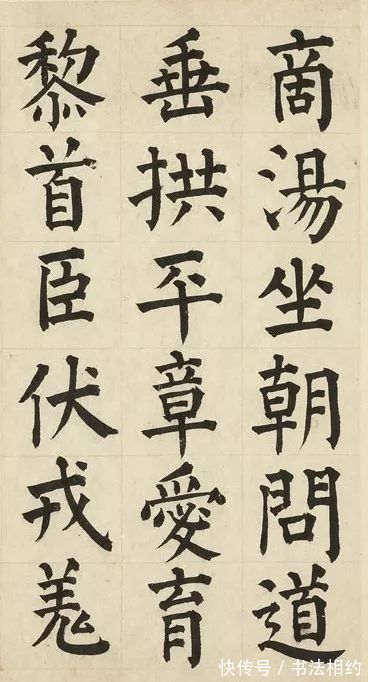 商湯坐朝問道
垂拱平章愛育
黎首臣伏戎羌
快传号 / 书法相约